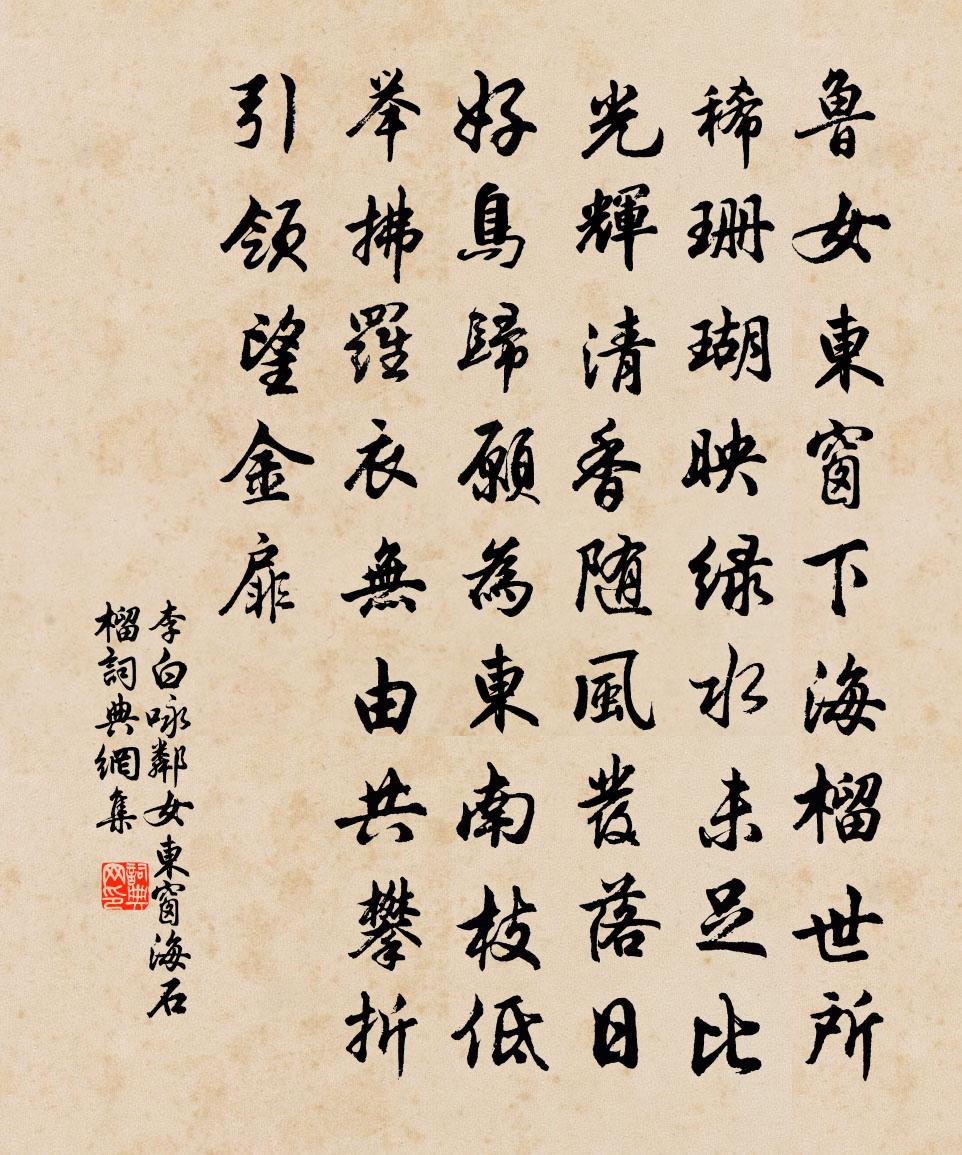 魯女東窗下海榴世所
稀珊瑚映綠水未足比
光輝清香随風發落日
好鳥歸願為東南枝低
举拂羅衣無由共攀折
引領望金扉
李白咏鄰女東窗海石
榴詞典網集
詞典
网印